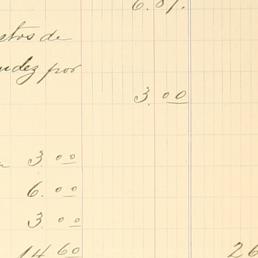 6.87.
stos de
udez por
3.00
3 00
6.00
3 00
14 60
26